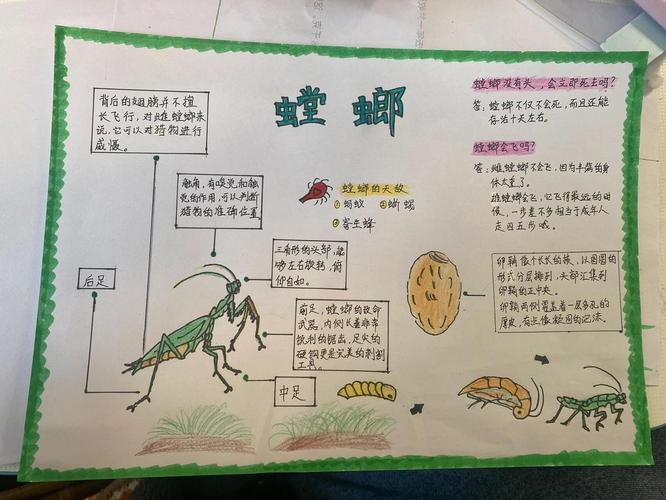 螳螂
背后的翅膀并不擅
长飞行，对此螳螂来
说，它可以对猎物进行
威慑。
触角，有嗅觉和触
觉的作用，可以判断
猎物的准确位置
三角形的头部，能
够左右旋转，俯
仰自如。
前足，螳螂的致命
武器，内侧长着非常
锐利的锯齿，足尖的
硬钩更是完美的刺割
工具。
后足
中足
螳螂的天敌
①蚂蚁 ②蜥蜴
③寄生蜂
螳螂没有头，会立即死去吗？
答：螳螂不仅不会死，而且还能
存活十天左右。
螳螂会飞吗？
答：雌螳螂不会飞，因为丰满的身
体太重了。
雄螳螂会飞，它飞得最远的时
候，一步差不多相当于成年人
走四五步呢。
卵鞘像个长长的茧，以圆圆的
形式分层排列，头部汇集到
卵鞘的正中央。
卵鞘两侧覆盖着一层多孔的
厚皮，有点像凝固的泡沫。